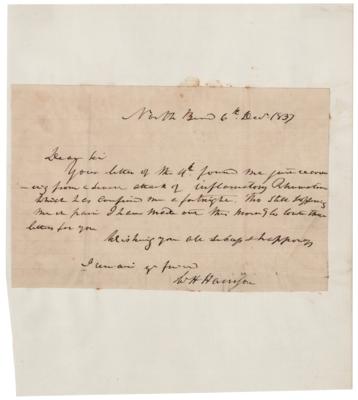 North Bend 6th Decr. 1837
Dear Sir
Your letter of the 4th found me just recover
-ing from a severe attack of inflamatory Rheumatism
which has confined me a fortnight. Tho still suffering
much pain I have made out this morning to write this
letter for you
Wishing you all & happiness
I remain yr friend
W H Harrison